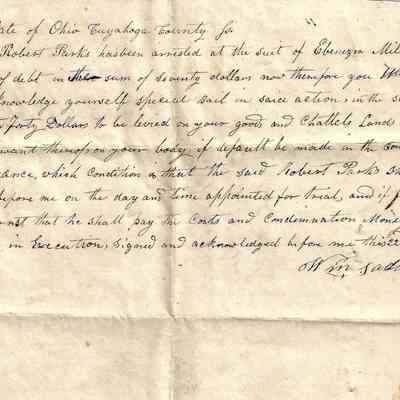 ate of Ohio Cuyahoga County Ss
Robert Parks hasbeen arrested at the suit of Ebenezra Mil
of debt in the sum of seventy dollars now therefore you
knowledge yourself special bail in said action, in the s
Forty Dollars to be levied on your goods and Chattels Land
want thereof on your body; if default be made in the con
ance, which Condition is that the said Robert Parks Sh
before me on the day and time appointed for treal, and if j
nst that he shall pay the Costs and Condemnation Mone
in Execution, Signed and acknowledged before me this 22
Wm